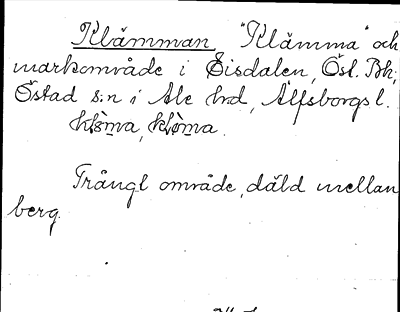 Klämman "Klämma" och
markområde i Eisdalen, Öst. Bk;
Östad s:n i Ale hd, Älfsborgs l.
Trångt område, däld mellan
berg.